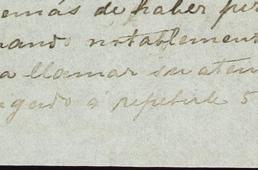 emás de haber per
nando notablement
a llamar su aten
á repetirle 5